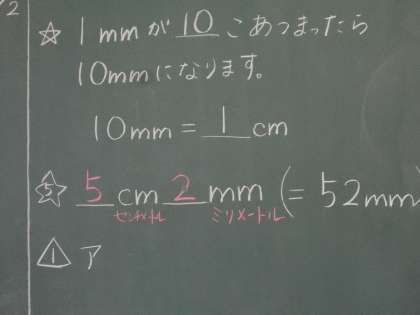 /2
☆ 1mmが 10 こあつまったら
10mmになります。
10mm = 1 cm
5 5 cm 2 mm (= 52mm)
センチメートル ミリメートル
1 ア